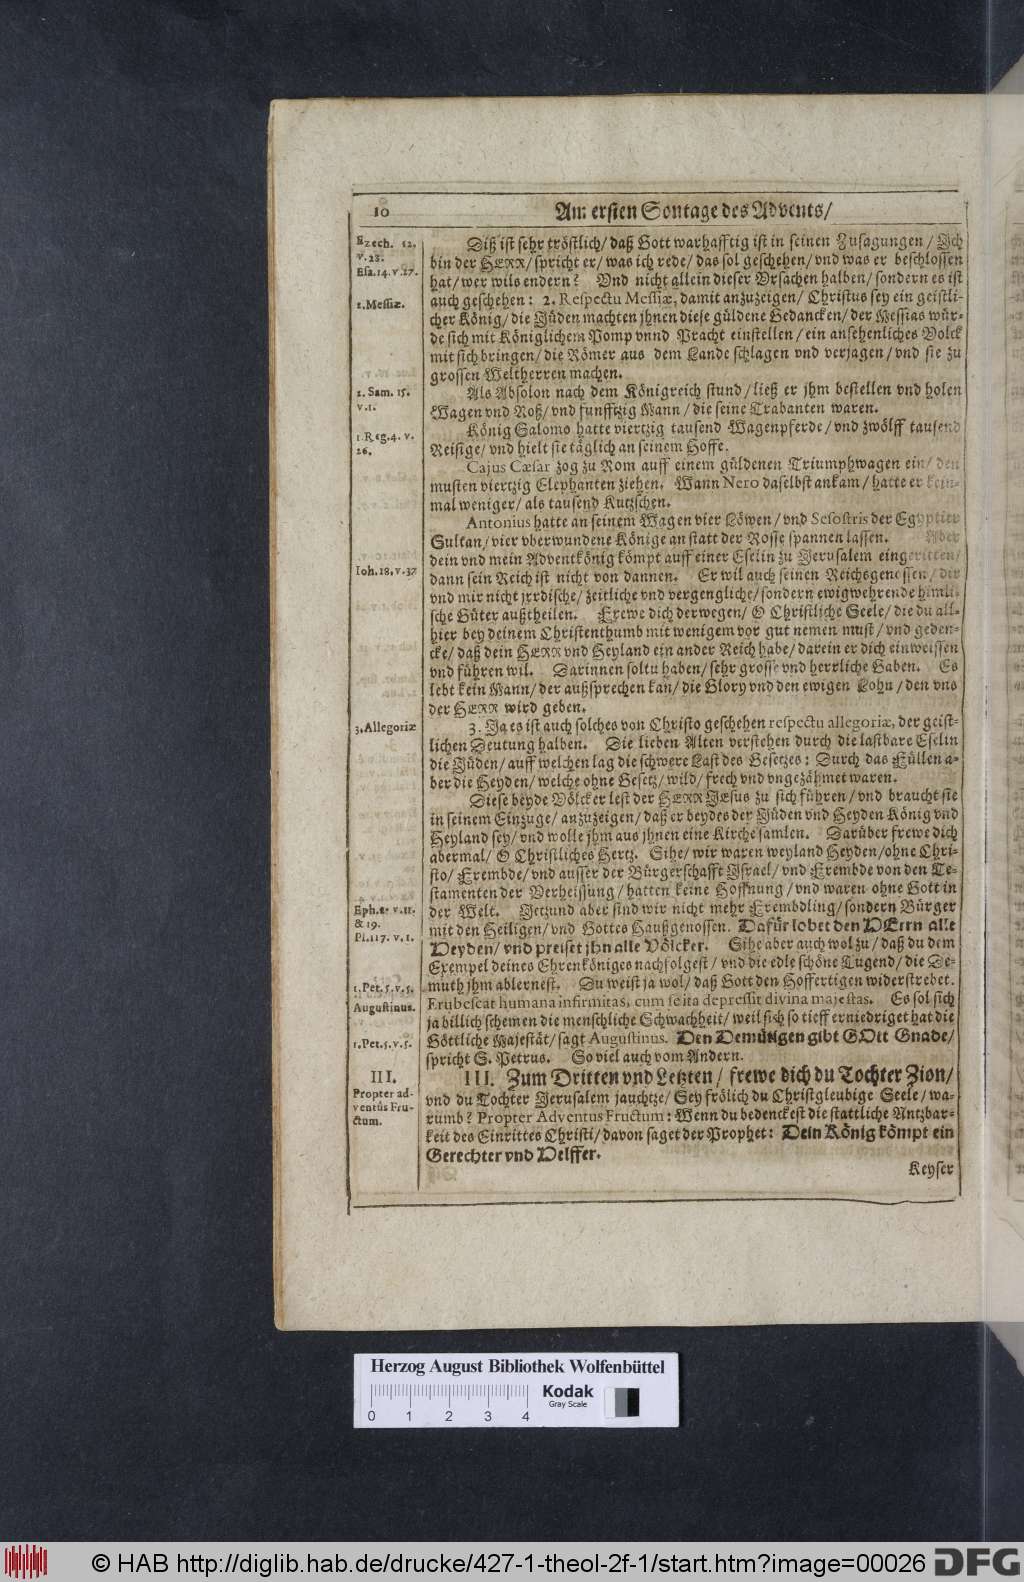 10
Am ersten Sontage des Advents/
Ezech. 12.
v. 28.
Esa. 14. v. 27.
2. Messiæ.
2. Sam. 15.
v. 1.
1 Reg. 4. v.
26.
Ioh. 18. v. 37
3. Allegoriæ
Eph. 2. v. 11.
& 19.
Ps. 117. v. 1.
1. Pet. 5. v. 5.
Augustinus.
1. Pet. 5. v. 5.
III.
Propter ad-
ventûs Fru-
ctum.
Diß ist sehr tröstlich/ daß Gott warhafftig ist in seinen Zusagungen/ Ich
bin der HERR/ spricht er/ was ich rede/ das sol geschehen/ vnd was er beschlossen
hat/ wer wils endern? Vnd nicht allein dieser Vrsachen halben/ sondern es ist
auch geschehen: 2. Respectu Messiæ, damit anzuzeigen/ Christus sey ein geistli-
cher König/ die Jüden machten jhnen diese güldene Gedancken/ der Messias wür-
de sich mit Königlichem Pomp vnnd Pracht einstellen/ ein ansehenliches Volck
mit sich bringen/ die Römer aus dem Lande schlagen vnd verjagen/ vnd sie zu
grossen Weltherren machen.
Als Absolon nach dem Königreich stund/ ließ er jhm bestellen vnd holen
Wagen vnd Roß/ vnd funfftzig Mann/ die seine Trabanten waren.
König Salomo hatte viertzig tausend Wagenpferde/ vnd zwölff tausend
Reisige/ vnd hielt sie täglich an seinem Hoffe.
Cajus Cæsar zog zu Rom auff einem güldenen Triumphwagen ein/ den
musten viertzig Elephanten ziehen. Wann Nero daselbst ankam/ hatte er kein-
mal weniger/ als tausend Kutzschen.
Antonius hatte an seinem Wagen vier Löwen/ vnd Sesostris der Egyptier
Sultan/ vier vberwundene Könige an statt der Rosse spannen lassen. Aber
dein vnd mein Adventkönig kömpt auff einer Eselin zu Jerusalem eingeritten/
dann sein Reich ist nicht von dannen. Er wil auch seinen Reichsgenossen/ dir
vnd mir nicht jrrdische/ zeitliche vnd vergengliche/ sondern ewigwehrende himli-
sche Güter außtheilen. Frewe dich derwegen/ O Christliche Seele/ die du all-
hier bey deinem Christenthumb mit wenigem vor gut nemen must/ vnd geden-
cke/ daß dein HERR vnd Heyland ein ander Reich habe/ darein er dich einweissen
vnd führen wil. Darinnen soltu haben/ sehr grosse vnd herrliche Gaben. Es
lebt kein Mann/ der außsprechen kan/ die Glory vnd den ewigen Lohn/ den vns
der HERR wird geben.
3. Ja es ist auch solches von Christo geschehen respectu allegoriæ, der geist-
lichen Deutung halben. Die lieben Alten verstehen durch die lastbare Eselin
die Jüden/ auff welchen lag die schwere Last des Gesetzes: Durch das Füllen a-
ber die Heyden/ welche ohne Gesetz/ wild/ frech vnd vngezähmet waren.
Diese beyde Völcker lest der HERR JEsus zu sich führen/ vnd braucht sie
in seinem Einzuge/ anzuzeigen/ daß er beydes der Jüden vnd Heyden König vnd
Heyland sey/ vnd wolle jhm aus jhnen eine Kirche samlen. Darüber frewe dich
abermal/ O Christliches Hertz. Sihe/ wir waren weyland Heyden/ ohne Chri-
sto/ Frembde/ vnd ausser der Bürgerschafft Israel/ vnd Frembde von den Te-
stamenten der Verheissung/ hatten keine Hoffnung/ vnd waren ohne Gott in
der Welt. Jetzund aber sind wir nicht mehr Frembdling/ sondern Bürger
mit den Heiligen/ vnd Gottes Haußgenossen. Dafür lobet den HErrn alle
Heyden/ vnd preiset jhn alle Völcker. Sihe aber auch wol zu/ daß du dem
Exempel deines Ehrenköniges nachfolgest/ vnd die edle schöne Tugend/ die De-
muth jhm ablernest. Du weist ja wol/ daß Gott den Hoffertigen widerstrebet.
Erubescat humana infirmitas, cum se ita depressit divina majestas. Es sol sich
ja billich schemen die menschliche Schwachheit/ weil sich so tieff erniedriget hat die
Göttliche Majestät/ sagt Augustinus. Den Demütigen gibt GOtt Gnade/
spricht S. Petrus. So viel auch vom Andern.
III. Zum Dritten vnd Letzten/ frewe dich du Tochter Zion/
vnd du Tochter Jerusalem jauchtze/ Sey frölich du Christgleubige Seele/ wa-
rumb? Propter Adventus Fructum: Wenn du bedenckest die stattliche Nutzbar-
keit des Einrittes Christi/ davon saget der Prophet: Dein König kömpt ein
Gerechter vnd Helffer.
Keyser
Herzog August Bibliothek Wolfenbüttel
Kodak
Gray Scale
0 1 2 3 4
© HAB http://diglib.hab.de/drucke/427-1-theol-2f-1/start.htm?image=00026
DFG